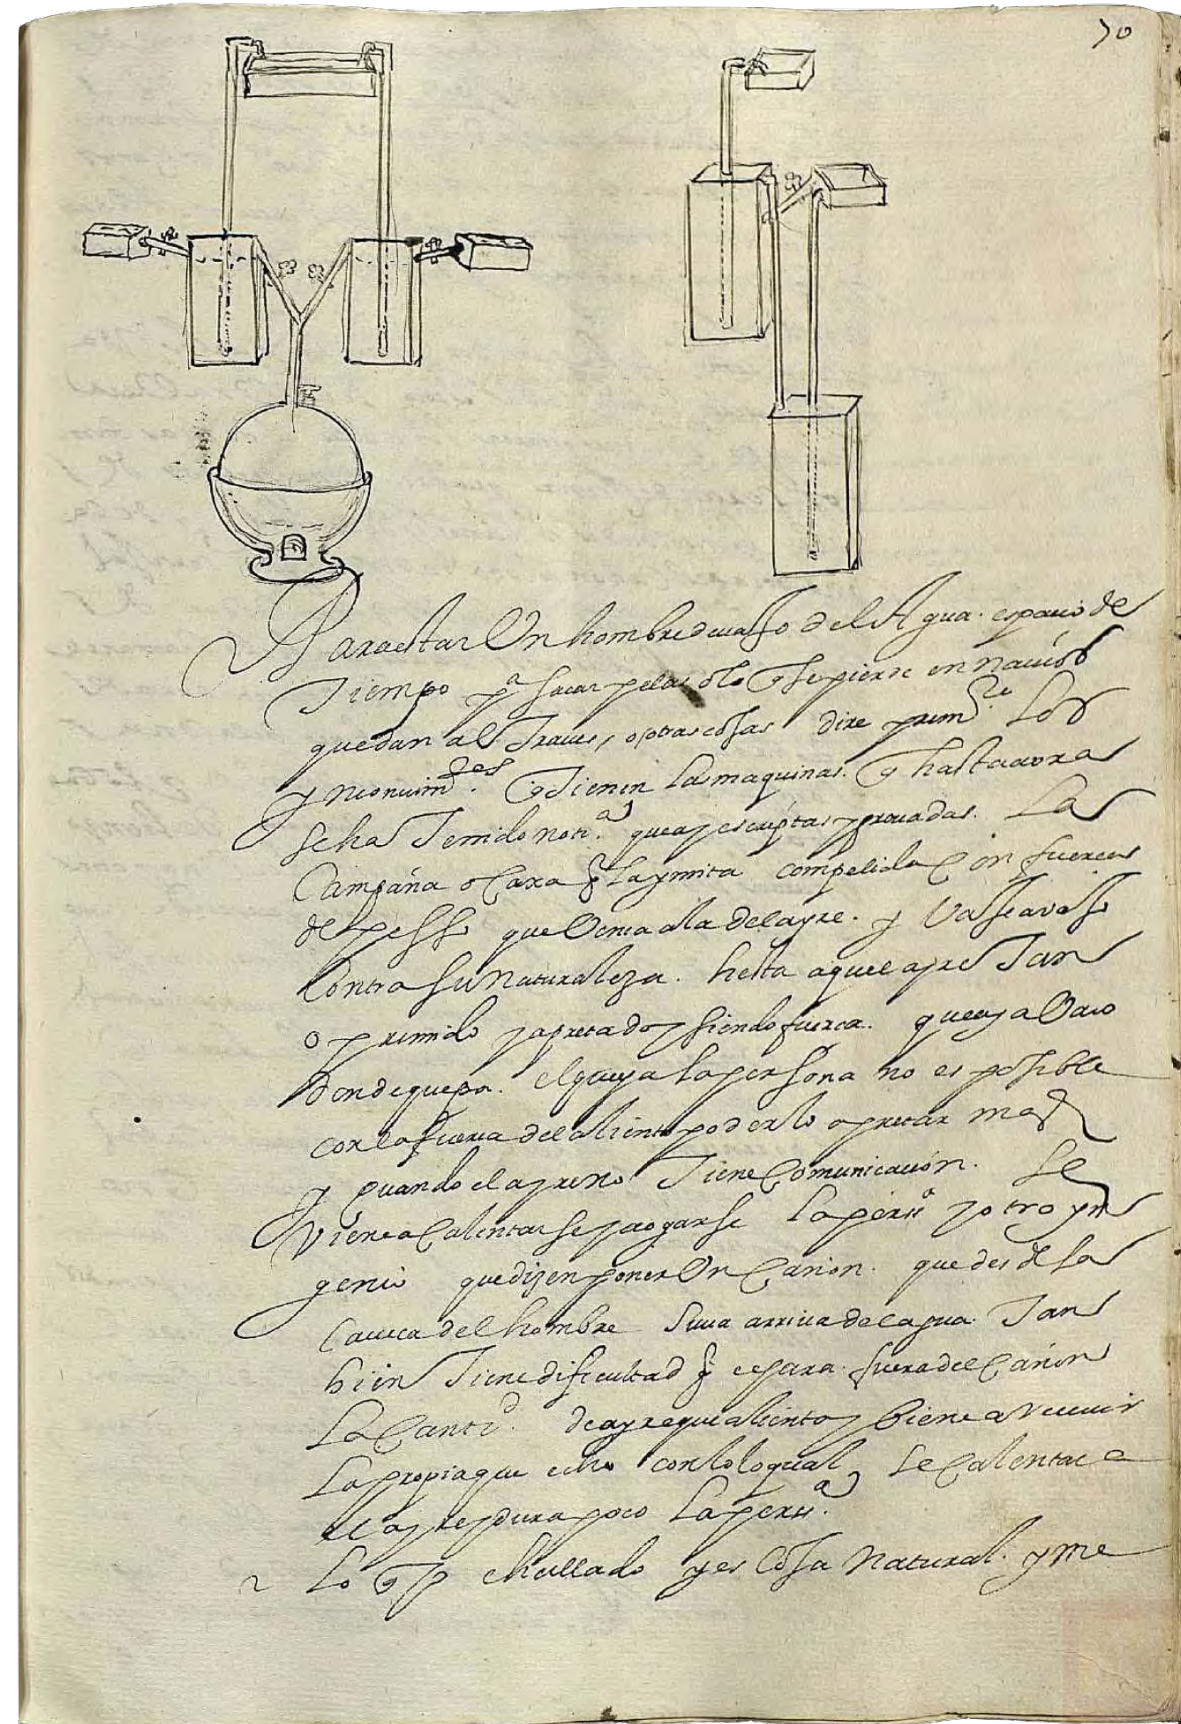 70
Para estar Un hombre devajo del Agua. espacio de
Tiempo pª sacar perlas o lo q se pierde en navios q
quedan al Traves, o otras cosas dire prim.te Los
ynconvin.tes q Tienen las maquinas. q hasta aora
se ha Tenido notiª que ay escriptas y provadas. La
Campana o Caxa q La ymita compelida Con fuerça
de pesso que Vença a la del ayre. y Vaya avajo
Contra su naturaleza. hesta aquel ayre Tan
oprimido y apretado y siendo fuerça. que aya Vacio
Donde quepa. el que aya la persona no es posible
con la fuerça del aliento poderlo apretar mas
y quando el ayre no Tiene Comunicacion. se
Viene a Calentarse y aogarse La persª y otro yn
genio que dizen poner Un Cañon. que desde la
Caveca del hombre suva arriva del agua. Tan
bien Tiene dificultad q espira fuera del Cañon
La Cantd. de ayre que aliento y biene a Recevir
La propia que echo con lo qual se Calenta
el ayre y dura poco La persª.
Lo q yo he hallado y es Cosa natural. y me